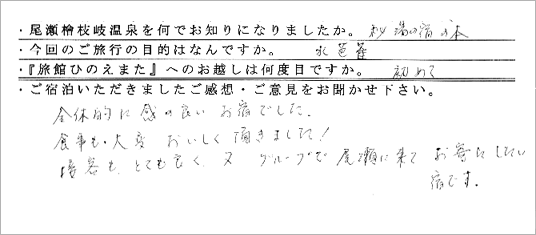 ・尾瀬檜枝岐温泉を何でお知りになりましたか。 秘湯の宿の本
・今回のご旅行の目的はなんですか。 水芭蕉
・『旅館ひのえまた』へのお越しは何度目ですか。 初めて
・ご宿泊いただきましたご感想・ご意見をお聞かせ下さい。
全体的に感の良いお宿でした。
食事も大変おいしく頂きました!
接客も、とても良く、又グループで尾瀬に来てお寄りしたい
宿です。